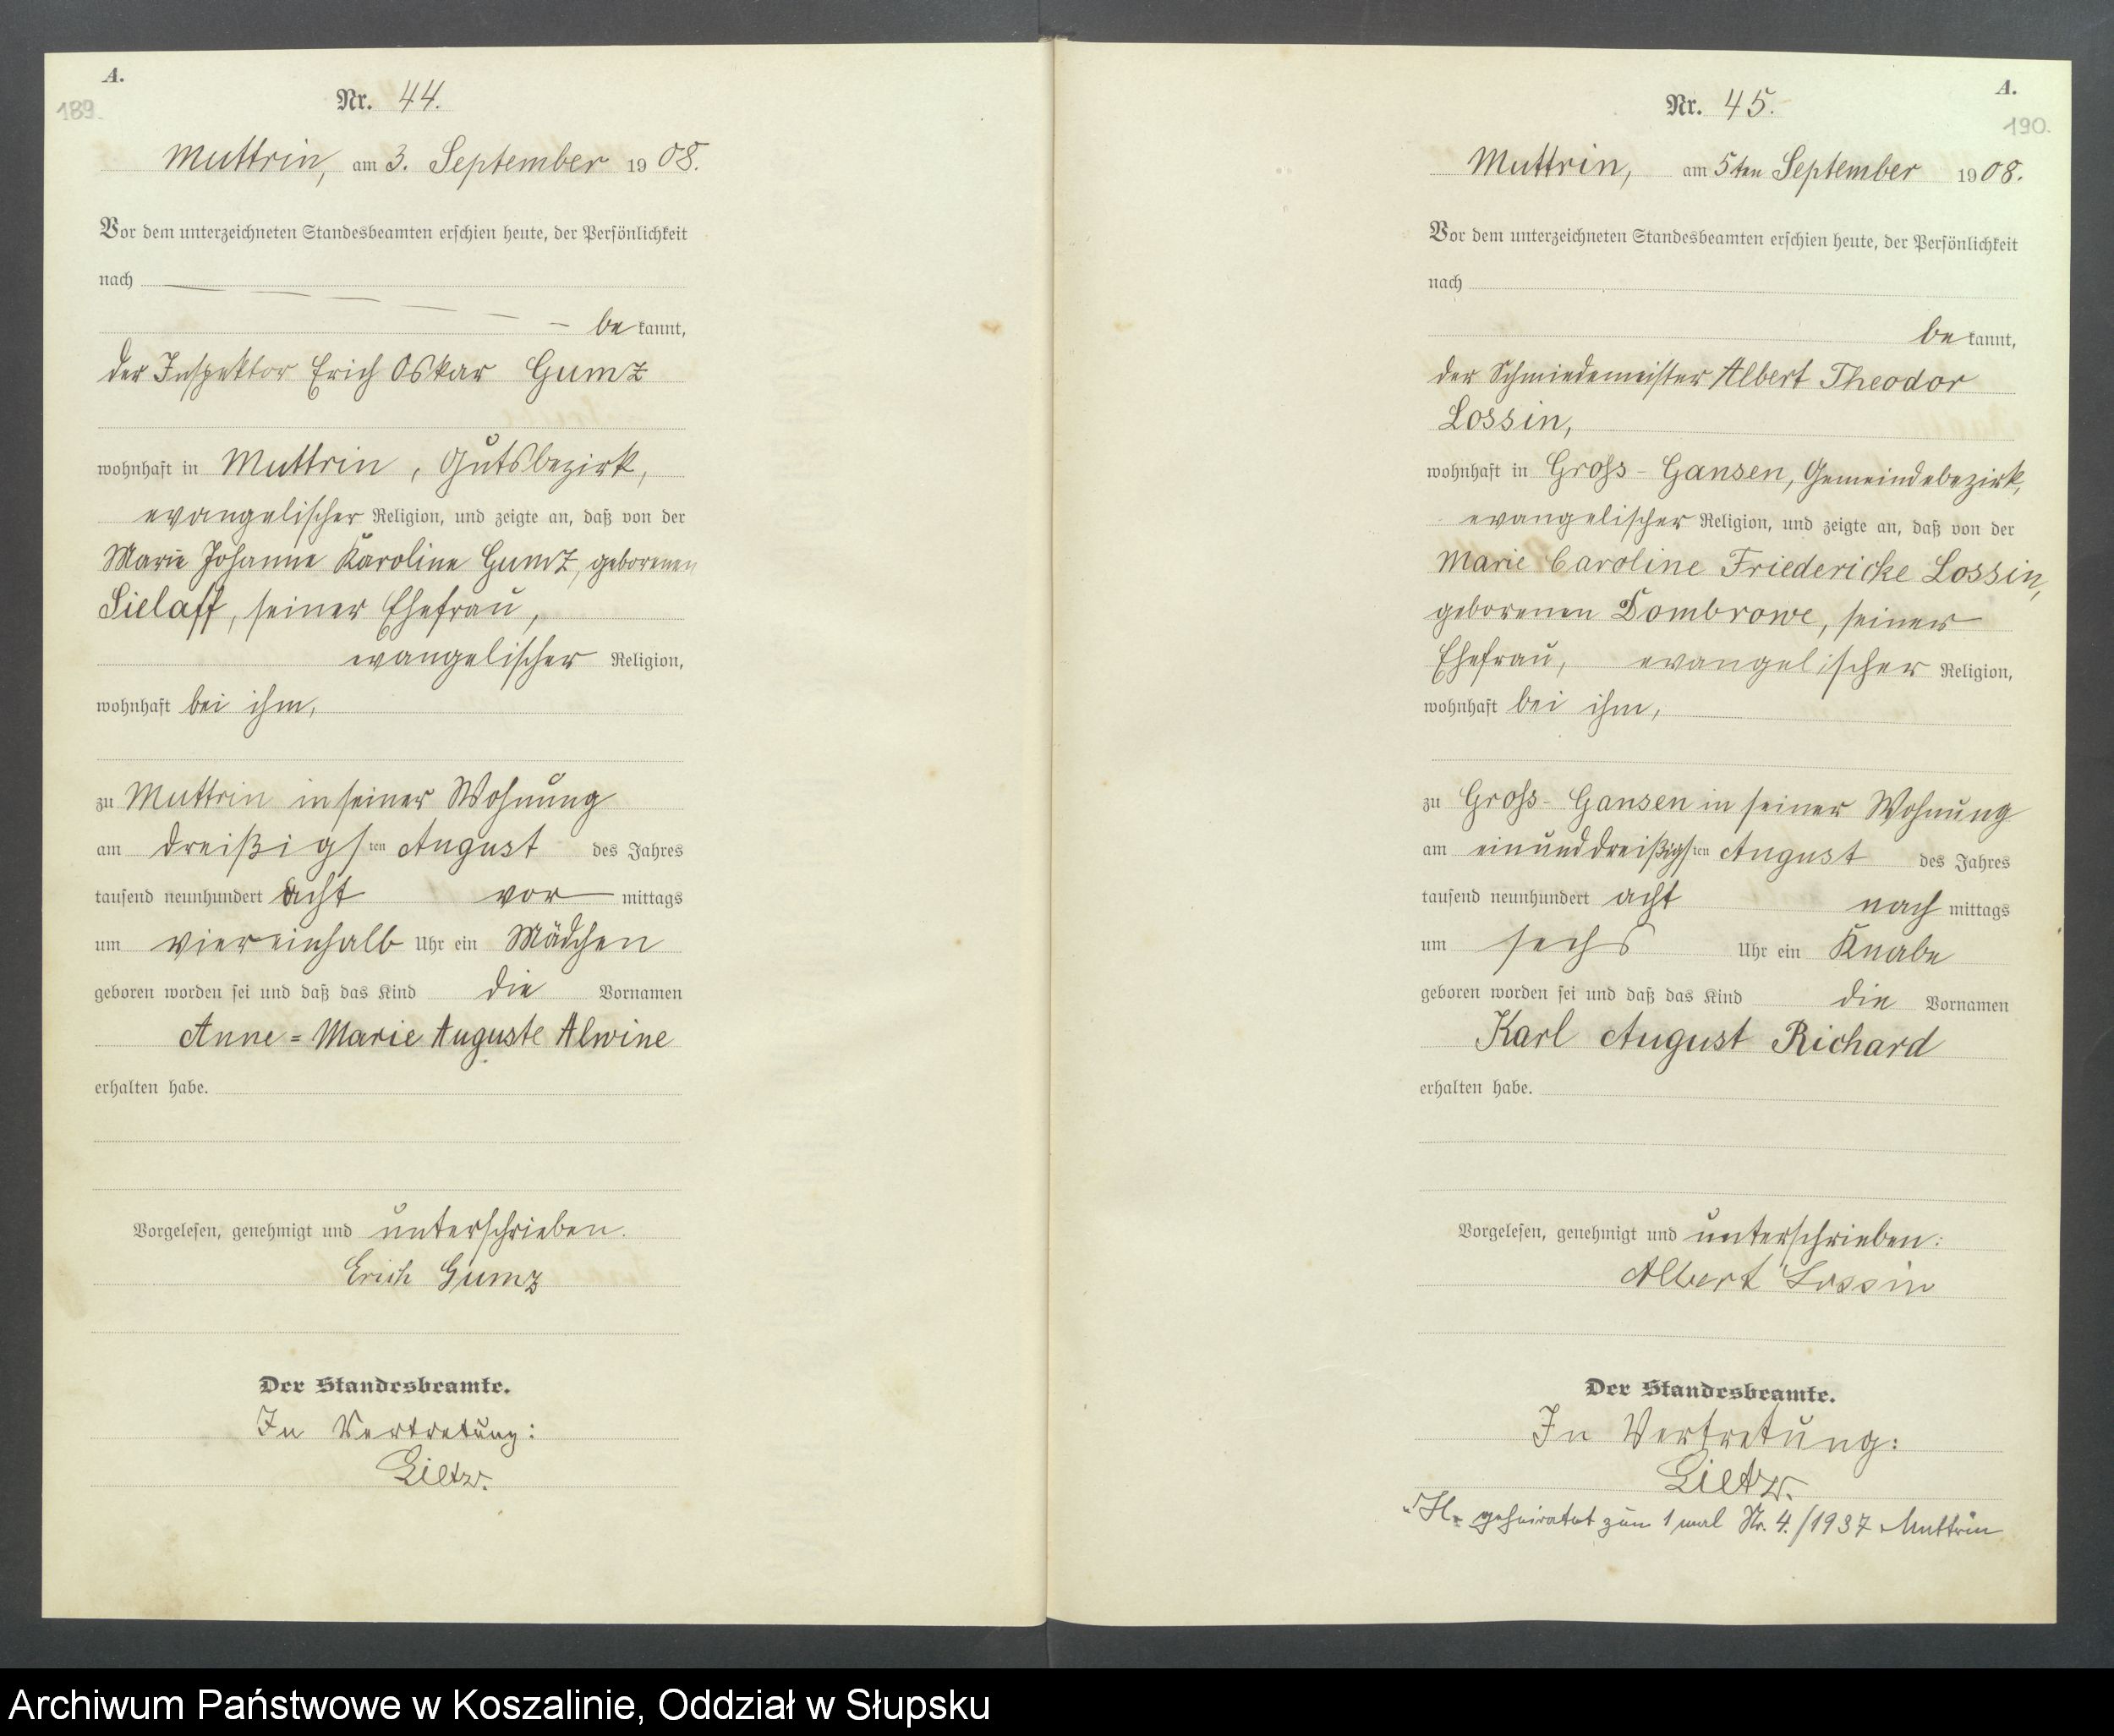 A.
189.
Nr. 44.
Muttrin, am 3. September 1908.
Vor dem unterzeichneten Standesbeamten erschien heute, der Persönlichkeit
nach
be kannt,
der Inspektor Erich Oskar Gumz
wohnhaft in Muttrin, Gutsbezirk,
evangelischer Religion, und zeigte an, daß von der
Marie Johanne Karoline Gumz, geborenen
Sielaff, seiner Ehefrau,
evangelischer Religion,
wohnhaft bei ihm,
zu Muttrin in seiner Wohnung
am dreißigsten August des Jahres
tausend neunhundert acht vormittags
um viereinhalb Uhr ein Mädchen
geboren worden sei und daß das Kind die Vornamen
Anne=Marie Auguste Alwine
erhalten habe.
Vorgelesen, genehmigt und unterschrieben.
Erich Gumz
Der Standesbeamte.
In Vertretung:
Lietz.
A.
190.
Nr. 45.
Muttrin, am 5ten September 1908.
Vor dem unterzeichneten Standesbeamten erschien heute, der Persönlichkeit
nach
be kannt,
der Schmiedemeister Albert Theodor
Lossin,
wohnhaft in Gross-Gansen, Gemeindebezirk,
evangelischer Religion, und zeigte an, daß von der
Marie Caroline Friedericke Lossin,
geborenen Dombrowe, seiner
Ehefrau, evangelischer Religion,
wohnhaft bei ihm,
zu Gross-Gansen in seiner Wohnung
am einunddreißigsten August des Jahres
tausend neunhundert acht nachmittags
um sechs Uhr ein Knabe
geboren worden sei und daß das Kind die Vornamen
Karl August Richard
erhalten habe.
Vorgelesen, genehmigt und unterschrieben:
Albert Lossin
Der Standesbeamte.
In Vertretung:
Lietz.
geheiratet zum 1 mal Nr. 4./1937 Muttrin
Archiwum Państwowe w Koszalinie, Oddział w Słupsku